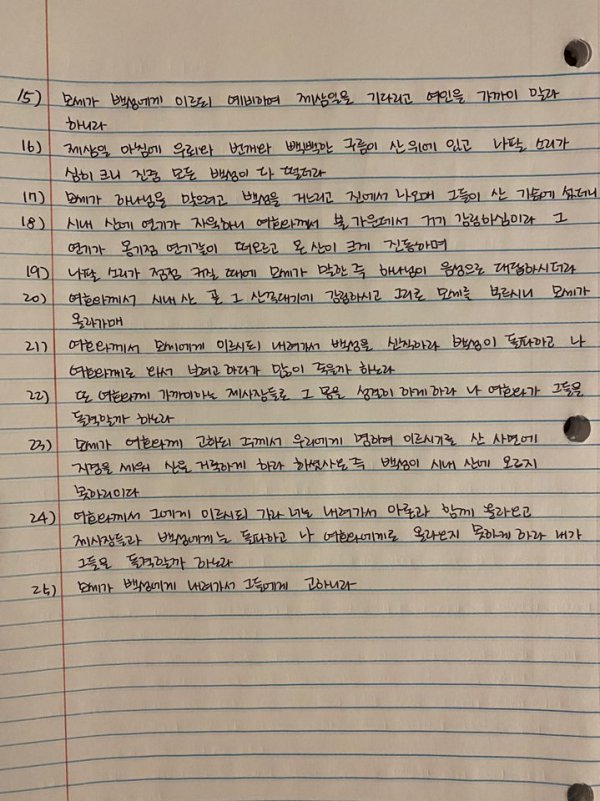 15) 모세가 백성에게 이르되 예비하여 제삼일을 기다리고 여인을 가까이 말라
하니라
16) 제삼일 아침에 우뢰와 번개와 빽빽한 구름이 산 위에 있고 나팔 소리가
심히 크니 진중 모든 백성이 다 떨더라
17) 모세가 하나님을 맞으려고 백성을 거느리고 진에서 나오매 그들이 산 기슭에 섰더니
18) 시내 산에 연기가 자욱하니 여호와께서 불 가운데서 거기 강림하심이라 그
연기가 옹기점 연기같이 떠오르고 온 산이 크게 진동하며
19) 나팔 소리가 점점 커질 때에 모세가 말한 즉 하나님이 음성으로 대답하시더라
20) 여호와께서 시내 산 곧 그 산꼭대기에 강림하시고 그리로 모세를 부르시니 모세가
올라가매
21) 여호와께서 모세에게 이르시되 내려가서 백성을 신칙하라 백성이 돌파하고 나
여호와께로 와서 보려고 하다가 많이 죽을까 하노라
22) 또 여호와께 가까이하는 제사장들로 그 몸을 성결히 하게하라 나 여호와가 그들을
돌격할까 하노라
23) 모세가 여호와께 고하되 주께서 우리에게 명하여 이르시기를 산 사면에
지경을 세워 산을 거룩하게 하라 하셨사온 즉 백성이 시내 산에 오르지
못하리이다
24) 여호와께서 그에게 이르시되 가라 너는 내려가서 아론과 함께 올라오고
제사장들과 백성에게는 돌파하고 나 여호와에게로 올라오지 못하게 하라 내가
그들을 돌격할까 하노라
25) 모세가 백성에게 내려가서 그들에게 고하니라